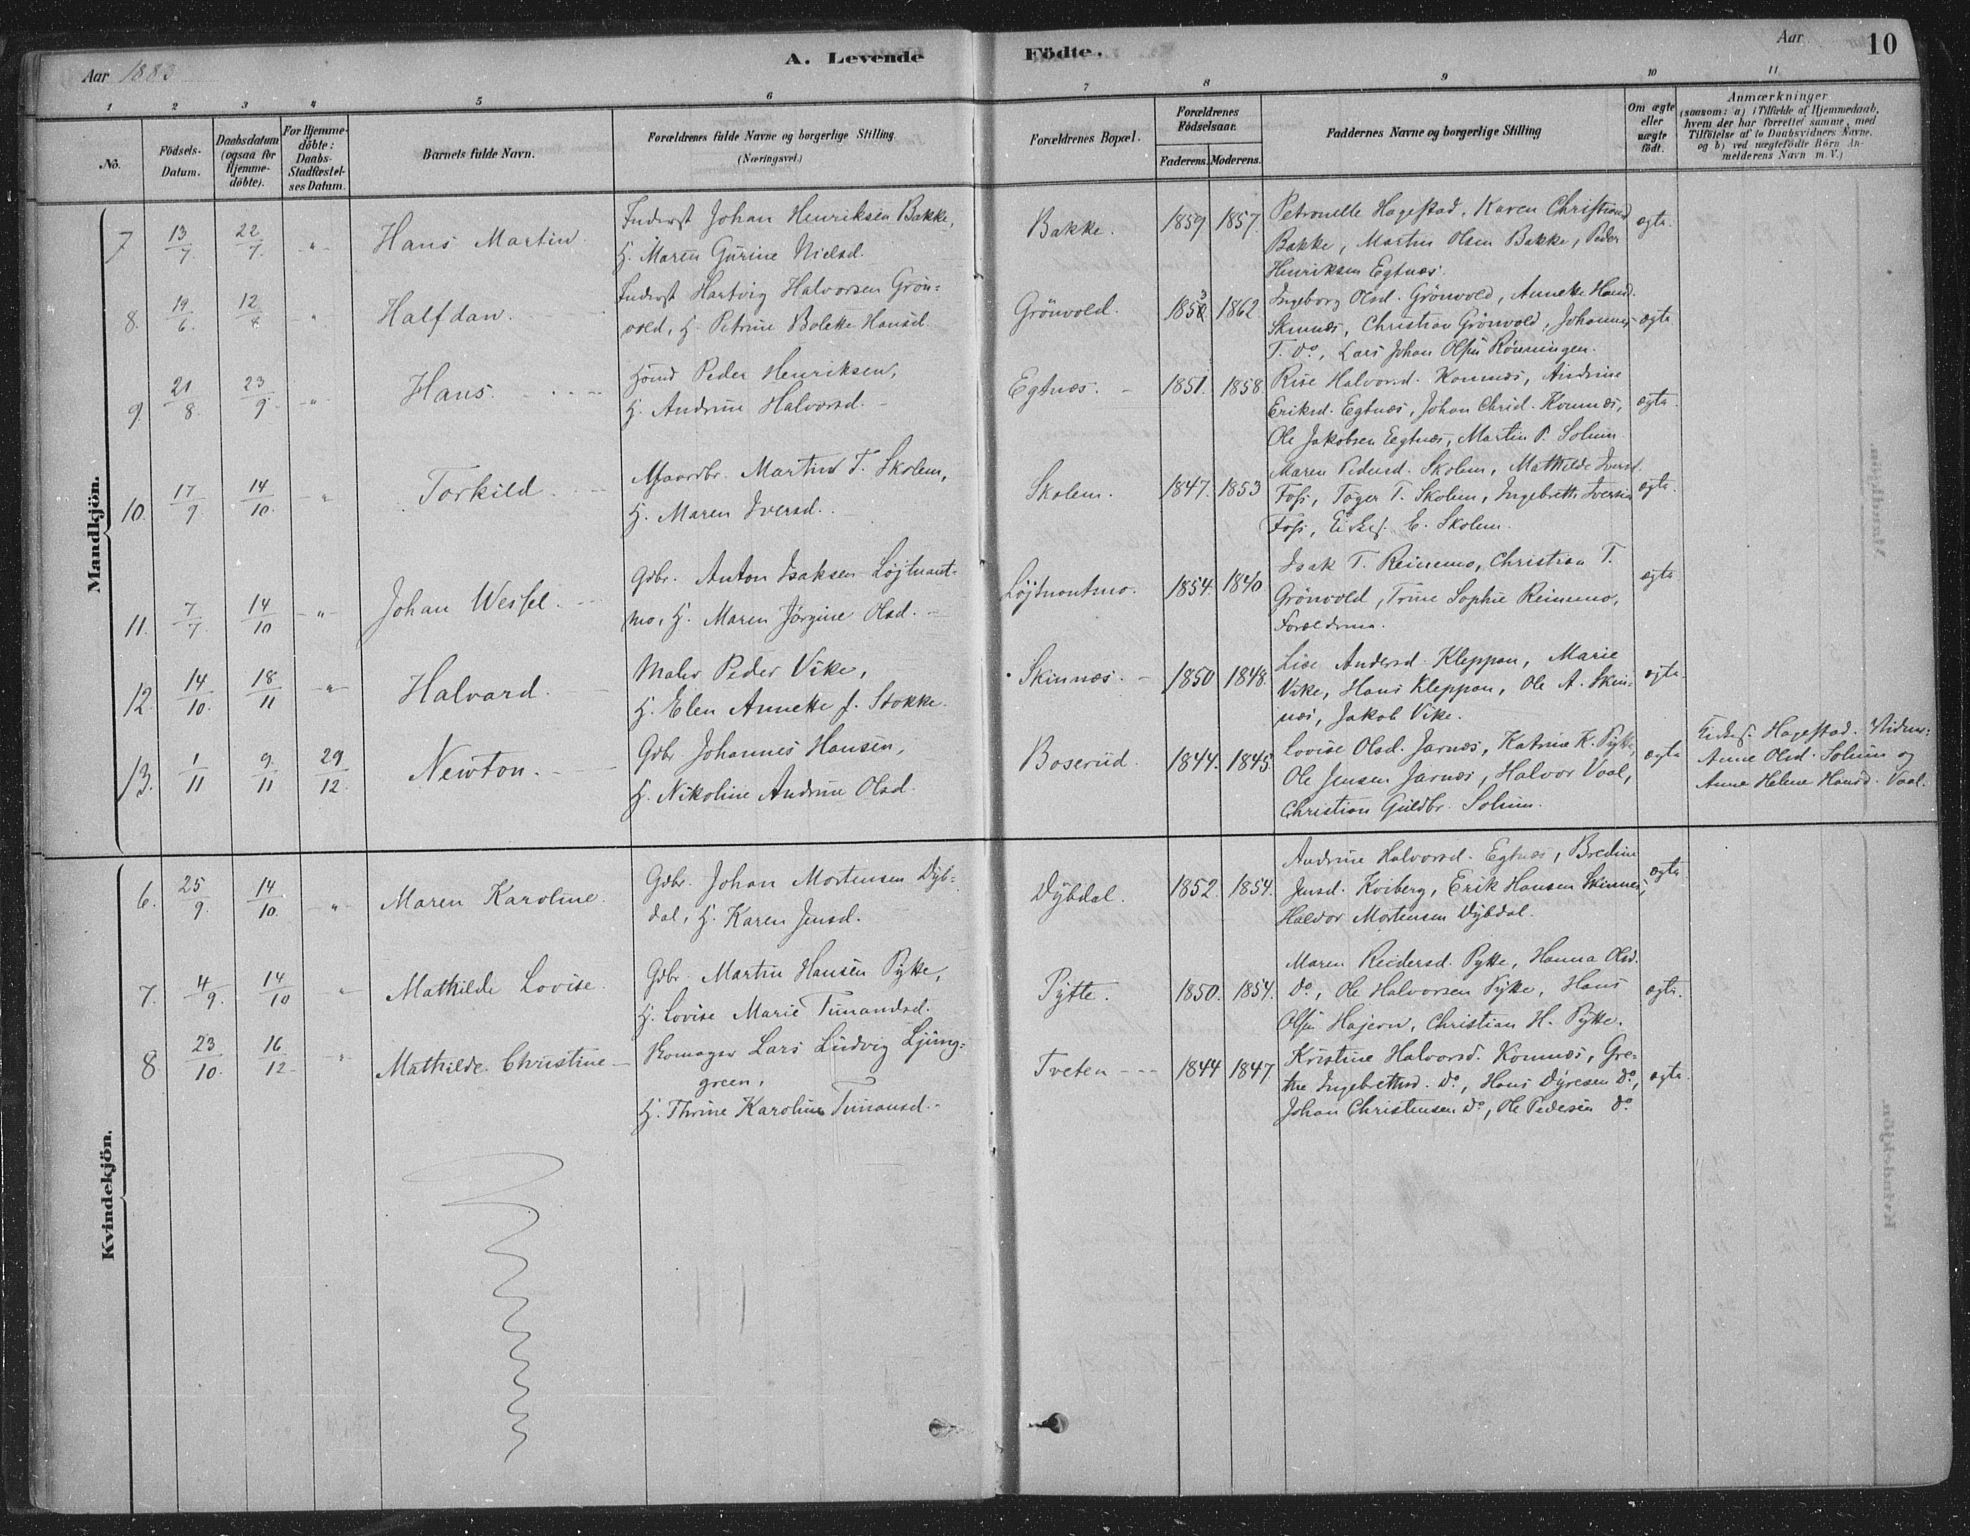 Aar 1883
A. Levende Födte.
Aar
10
1 2 3 4 5 6 7 8 9 10 11
No.
Födsels-
Datum.
Daabsdatum
(ogsaa for
Hjemme-
döbte).
For Hjemme-
döbte:
Daabs-
Stadfæstel-
ses Datum.
Barnets fulde Navn.
Forældrenes fulde Navne og borgerlige Stilling.
(Næringsvei.)
Forældrenes Bopæl.
Forældrenes
Födselsaar.
Faderens. Moderens.
Faddernes Navne og borgerlige Stilling
Om ægte
eller
uægte
födt.
Anmærkninger
(saasom: a) i Tilfælde af Hjemmedaab,
hvem der har forrettet samme, med
Tilföielse af to Daabsvidners Navne,
og b) ved uægtefödte Börn An-
melderens Navn m. V.)
Mandkjön.
7 13/7 22/7 - " Hans Martin
Inderst Johan Henriksen Bakke,
H. Maren Gurine Nielsd.
Bakke. 1859 1857.
Petronelle Hagestad, Karen Christiand
Bakke, Martin Olsen Bakke, Peder
Henriksen Egtnæs.
ægte
8. 19/6 12/8 - " Halfdan
Inderst Hartvig Halvorsen Grön-
vold, H. Petrine Bolette Hansd
Grönvold. 1853 1862
Ingeborg Olsd. Grönvold, Anneke Hansd.
Skinnæs, Christian Grönvold, Johannes
T. do, Lars Johan Olsen Rönningen.
ægte
9. 21/8 23/9 - " - Hans.
Huusmd Peder Henriksen,
H. Andrine Halvorsd. -
Egtnæs. - 1851. 1858
Rise Halvorsd. Komnæs, Andrine
Eriksd. Egtnæs, Johan Chrid. Komnæs,
Ole Jakobsen Egtnæs, Martin P. Solum.
ægte
10. 17/9 14/10 - " Torkild
Martin T. Skolem,
H. Maren Iversd.
Skolem. 1847. 1853
Maren Pedersd. Skolem, Mathilde Iversd
Foss, Toger T. Skolem, Ingebreth Iversen
Foss, E. Skolem.
ægte
11. 7/7 14/10 - " Johan Wessel
Gdbr. Anton Isaksen Løjtnant-
mo, H. Maren Jørgine Olsd. -
Løjtnantmo. 1854. 1840
Isak T. Reinemo, Christian T.
Grönvold, Trine Sophie Reinemo,
Forældrene.
ægte
12. 14/10. 18/11 - " Halvard.
Maler Peder Vike,
H. Elen Annette J. Stokke.
Skinnæs. - 1850 1848
Lise Andersd. Kleppan, Marie
Vike, Hans Kleppan, Ole A. Skin-
næs, Jakob Vike.
ægte
13. 1/11 9/11 29/12. Newton.
Gdbr Johannes Hansen,
H. Nikoline Andrine Olsd.
Boserud. 1844. 1845
Lovise Olsd. Jarnæs, Katrine K. Pytte,
Ole Jensen Jarnæs, Halvor Vaal,
Christian Guldbr. Solum.
ægte
Hagestad. Vidner:
Anne Olsd. Solum og
Anne Helene Hansd. Vaal.
Kvindekjön.
6. 25/9. 14/10. - " Maren Karoline.
Gdbr. Johan Mortensen Dyb-
dal, H. Karen Jensd.
Dybdal. 1852. 1854.
Andrine Halvorsd. Egtnæs, Bredine
Jensd. Kviberg, Erik Hansen Skinnes,
Halvor Mortensen Dybdal.
ægte
7. 4/9. 14/10 " Mathilde Lovise.
Gdbr. Martin Hansen Pytte,
H. Lovise Marie Timandsd.
Pytte. 1850. 1854.
Maren Reidersd. Pytte, Hanna Olsd.
do, Ole Halvorsen Pytte, Hans
Olsen Hajern, Christian H. Pytte.
ægte.
8 23/10. 16/12 - " Mathilde Christine -
Skomager Lars Ludvig Ljung-
green,
H. Thrine Karoline Timansd. -
Tveten - - - 1844 1847
Kristine Halvorsd. Komnæs, Gre-
the Ingebrethsd. do, Hans Dyresen do,
Johan Christensen do, Ole Pedersen do
ægte.